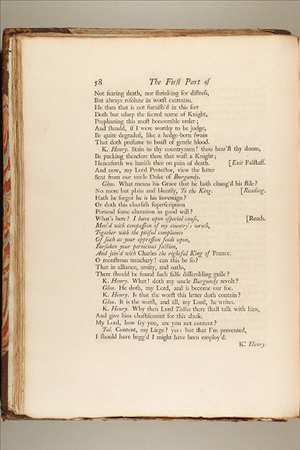 58 The First Part of
Not fearing death, nor shrinking for distress,
But always resolute in worst extreams.
He then that is not furnish'd in this sort
Doth but usurp the sacred name of Knight,
Prophaning this most honourable order;
And should, if I were worthy to be judge,
Be quite degraded, like a hedge-born swain
That doth presume to boast of gentle blood.
K. Henry. Stain to thy countrymen! thou hear'st thy doom,
Be packing therefore thou that wast a Knight;
Henceforth we banish thee on pain of death. [Exit Falstaff.
And now, my Lord Protector, view the letter
Sent from our uncle Duke of Burgundy.
Glou. What means his Grace that he hath chang'd his stile?
No more but plain and bluntly, To the King. [Reading.
Hath he forgot he is his Sovereign?
Or doth this churlish superscription
Portend some alteration in good will?
What's here? I have upon especial cause, [Reads.
Mov'd with compassion of my country's wreck,
Together with the pitiful complaints
Of such as your oppression feeds upon,
Forsaken your pernicious faction,
And join'd with Charles the rightful King of France.
O monstrous treachery! can this be so?
That in alliance, amity, and oaths,
There should be found such false dissembling guile?
K. Henry. What! doth my uncle Burgundy revolt?
Glou. He doth, my Lord, and is become our foe.
K. Henry. Is that the worst this letter doth contain?
Glou. It is the worst, and all, my Lord, he writes.
K. Henry. Why then Lord Talbot there shall talk with him,
And give him chastisement for this abuse.
My Lord, how say you, are you not content?
Tal. Content, my Liege? yes: but that I'm prevented,
I should have begg'd I might have been employ'd.
K. Henry.